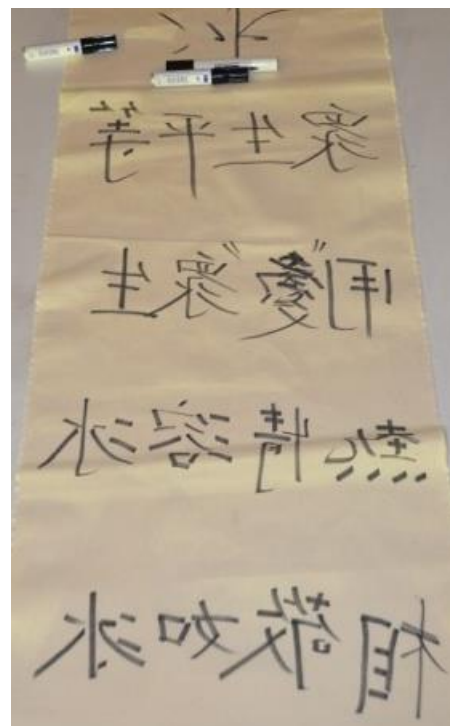 眾生平等
用"愛"眾生
熱情溶冰
相敬如冰